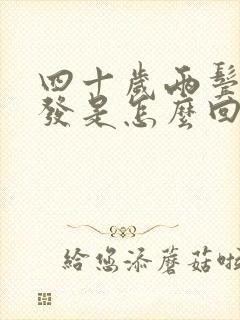 四十歲兩鬢
發是怎麼回
給您添蘑菇啦